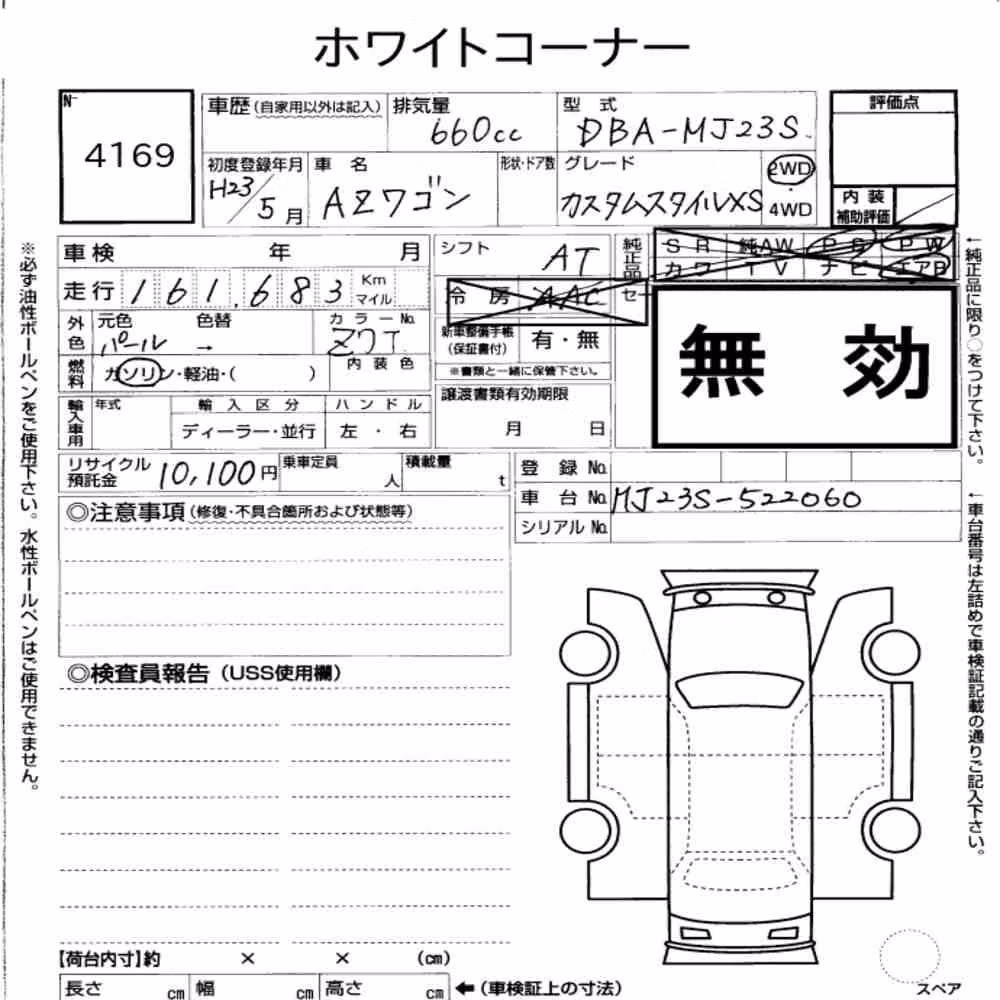 ホワイトコーナー
No
4169
車歴(自家用以外は記入) 排気量 型式 評価点
660cc DBA-MJ23S
初度登録年月 車名 形状・ドア数 グレード 2WD
H23/5月 AZワゴン カスタムスタイルXS 4WD
内装
補助評価
車検 年 月 シフト AT 純正品 SR 純AW PS PW
カワ TV ナビ エアB
走行 161,683 Km マイル 冷房 AAC
無効
外色 元色 色替 カラーNo.
パール → Z7T
新車整備手帳
(保証書付) 有・無
燃料 ガソリン・軽油・( ) 内装色
※書類と一緒に保管下さい。
輸入車用 年式 輸入区分 ハンドル 譲渡書類有効期限
ディーラー・並行 左・右 月 日
リサイクル
預託金 10,100円 乗車定員 人 積載量 t
登録No.
車台No. MJ23S-522060
シリアルNo.
◎注意事項(修復・不具合箇所および状態等)
◎検査員報告(USS使用欄)
【荷台内寸】約 × × (cm)
長さ cm 幅 cm 高さ cm ←(車検証上の寸法)
スペア
※必ず油性ボールペンをご使用下さい。水性ボールペンはご使用できません。
←純正品に限り○をつけて下さい。
←車台番号は左詰めで車検証記載の通りご記入下さい。